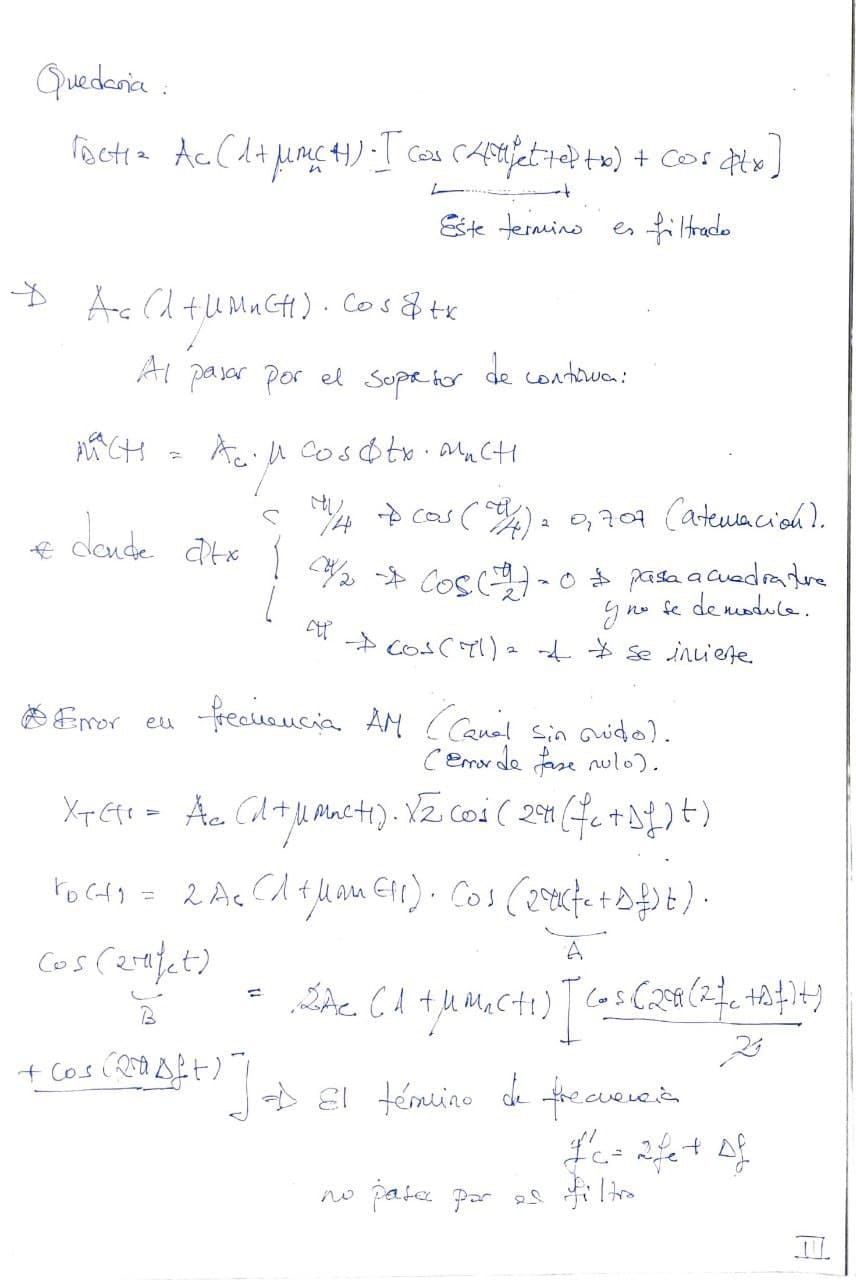 Quedaría:
r_D(t) = Ac(1+μm_n(t))·[cos(4πfct+ϕtx) + cos ϕtx]
Este termino es filtrado
→ Ac(1+μm_n(t)). cos ϕtx
Al pasar por el supresor de continua:
m̂(t) = Ac·μ cosϕtx·m_n(t)
* donde ϕtx { π/4 → cos(π/4) = 0,707 (atenuación).
π/2 → cos(π/2) = 0 → pasa a cuadratura
y no se demodula.
π → cos(π) = -1 → se invierte
* Error en frecuencia AM (Canal sin ruido).
(Error de fase nulo).
X_T(t) = Ac(1+μm_n(t)).√2 cos(2π(fc+Δf)t)
r_D(t) = 2Ac(1+μm_n(t)). Cos(2π(fc+Δf)t).
A
cos(2πfct)
B
= 2Ac(1+μm_n(t))[cos(2π(2fc+Δf)t)
2
+ cos(2πΔft)] ⇒ El término de frecuencia
f'c = 2fc + Δf
no pasa por el filtro
III